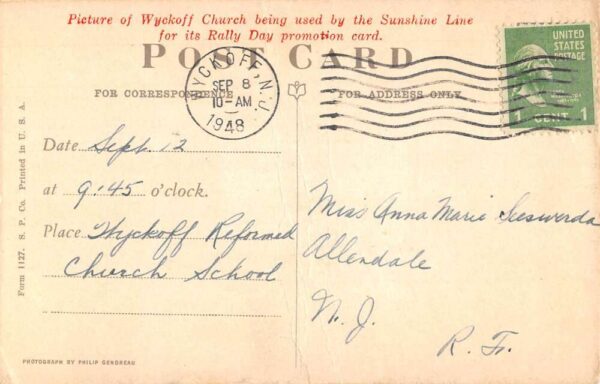 Picture of Wyckoff Church being used by the Sunshine Line
for its Rally Day promotion card.
POST CARD
FOR CORRESPONDENCE
FOR ADDRESS ONLY
WYCKOFF, N.J.
SEP 8
10-AM
1948
UNITED
STATES
POSTAGE
1 CENT 1
Date Sept. 12
at 9:45 o'clock.
Place Wyckoff Reformed
Church School
Miss Anna Marie
Allendale
N. J.
R. Fr.
Form 1127. S. P. Co. Printed in U. S. A.
PHOTOGRAPH BY PHILIP GENDREAU